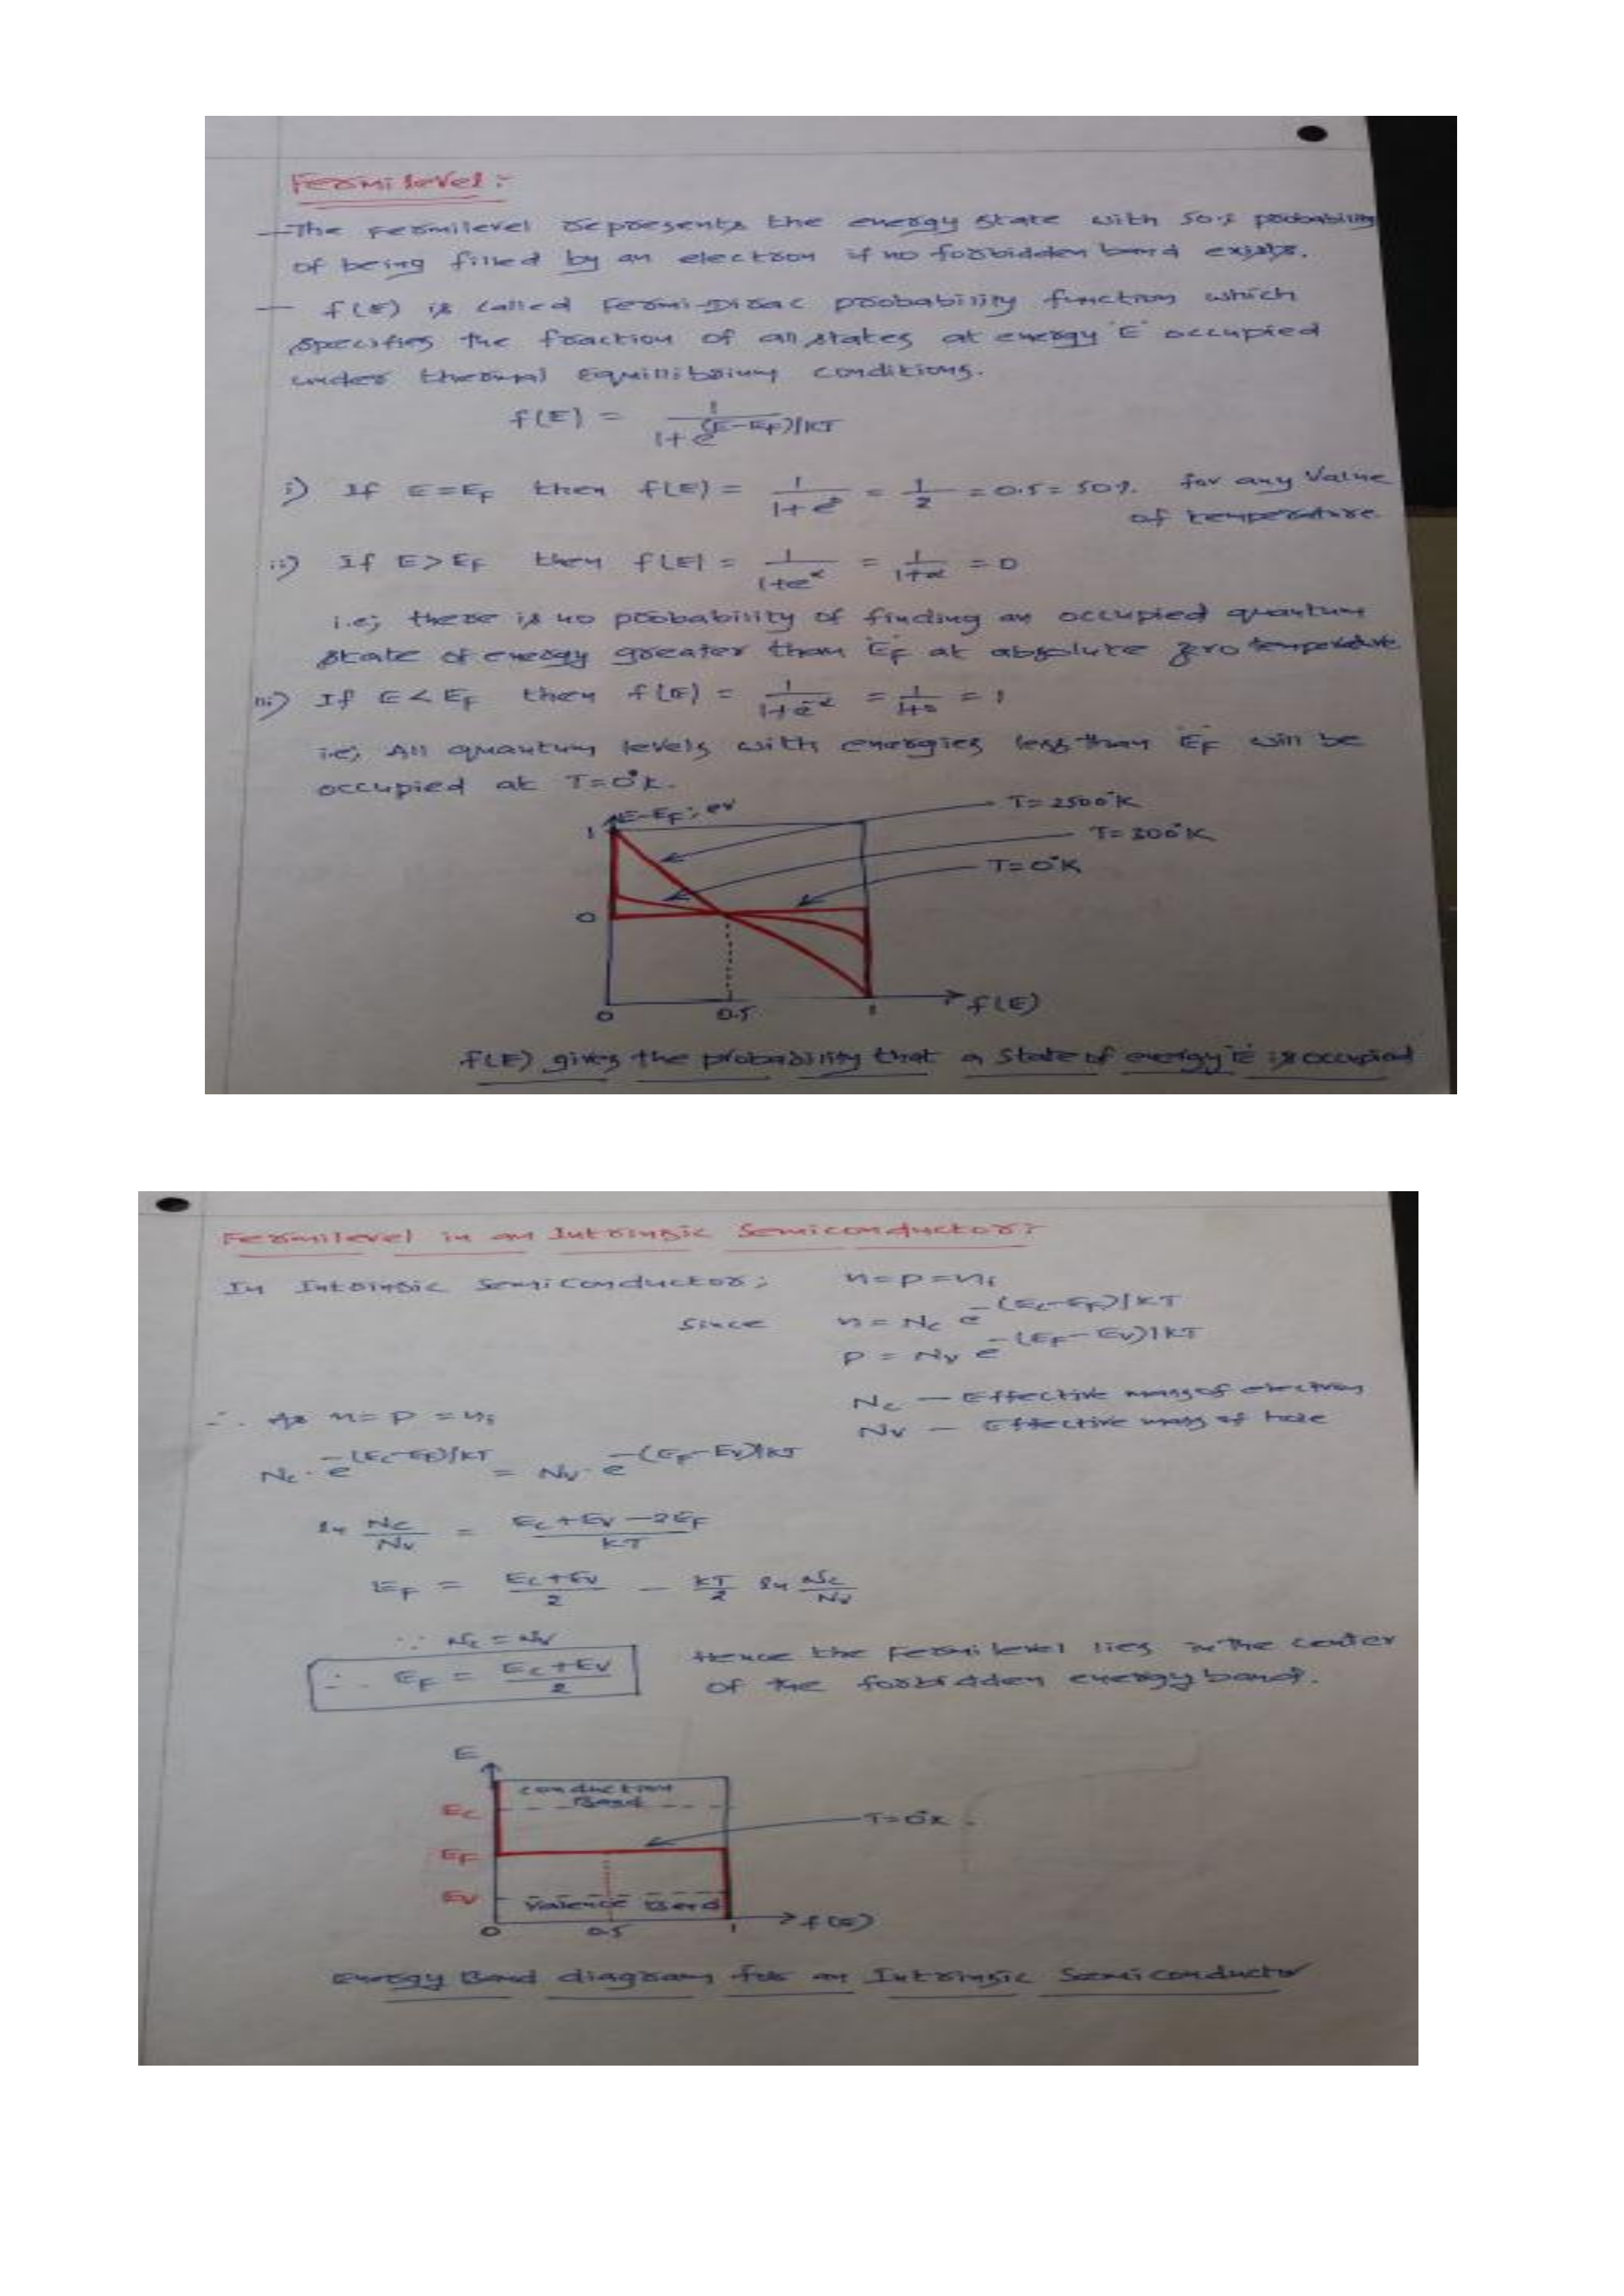 Fermi level :-
- The Fermilevel represents the energy state with 50% probability
of being filled by an electron if no forbidden band exists.
- f(E) is called Fermi-Dirac probability function which
specifies the fraction of all states at energy 'E' occupied
under thermal Equillibrium conditions.
f(E) = 1/(1+e^(E-EF)/KT)
i) If E=EF then f(E) = 1/(1+e^0) = 1/2 = 0.5 = 50%. for any Value
of temperature
ii) If E>EF then f(E) = 1/(1+e^∝) = 1/(1+∝) = 0
i.e; there is no probability of finding an occupied quantum
state of energy greater than 'EF' at absolute zero temperature
iii) If E<EF then f(E) = 1/(1+e^-∝) = 1/(1+0) = 1
i.e; All quantum levels with energies less than 'EF' will be
occupied at T=0°K.
E-EF, ev
T=2500°K
1
T=300°K
T=0°K
0
0 0.5 1 f(E)
f(E) gives the probability that a State of energy 'E' is occupied
Fermilevel in an Intrinsic Semiconductor:
In Intrinsic Semiconductor; n=p=ni
Since n = Nc e^-(Ec-EF)/KT
p = Nv e^-(EF-Ev)/KT
Nc — Effective mass of electron
∴ As n=p=ni
Nv — Effective mass of hole
Nc. e^-(Ec-EF)/KT = Nv. e^-(EF-Ev)/KT
ln Nc/Nv = (Ec+Ev-2EF)/KT
EF = (Ec+Ev)/2 - KT/2 ln Nc/Nv
∵ Nc=Nv
Hence the Fermi level lies in the center
∴ EF = (Ec+Ev)/2
of the forbidden energy band.
E
conduction
Band
Ec
T=0°K.
EF
Ev
Valence Band
0 0.5 1 f(E)
Energy Band diagram for an Intrinsic Semiconductor